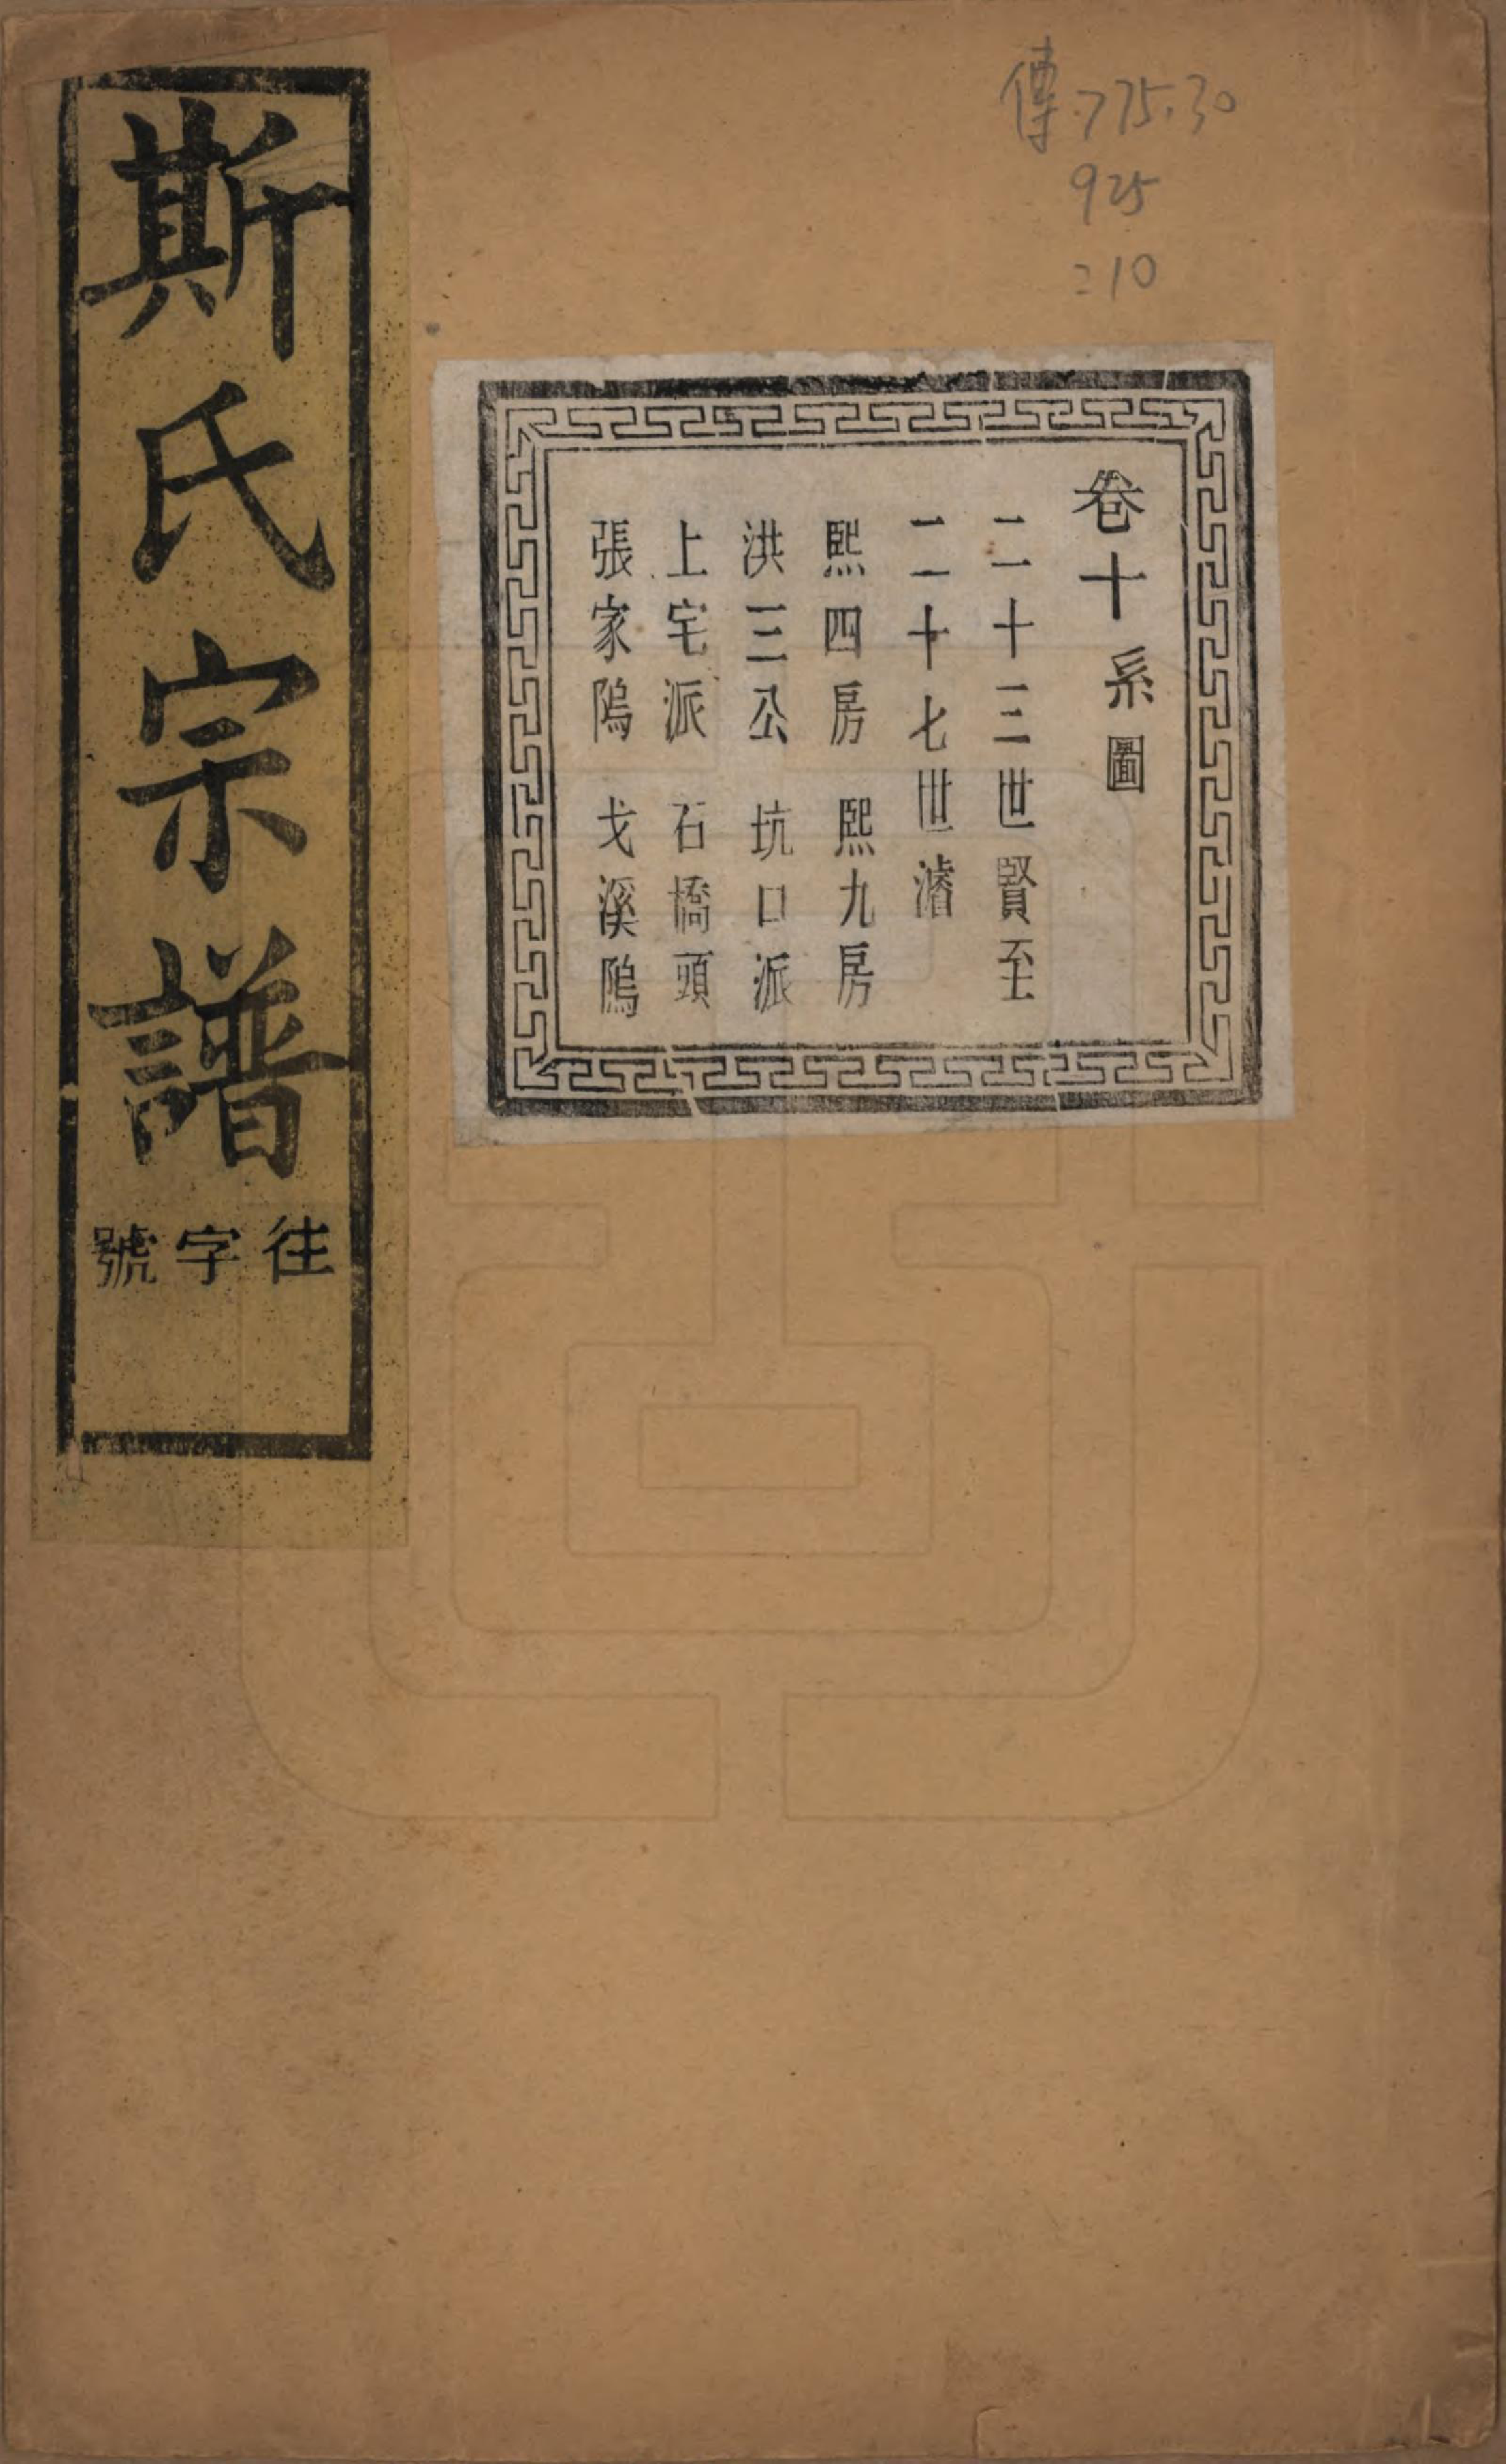 傳.775.30
925
:10
卷十 系圖
二十三世賢至
二十七世濬
熙四房 熙九房
洪三公 坑口派
上宅派 石橋頭
張家隖 戈溪隖
斯氏宗譜
往字號